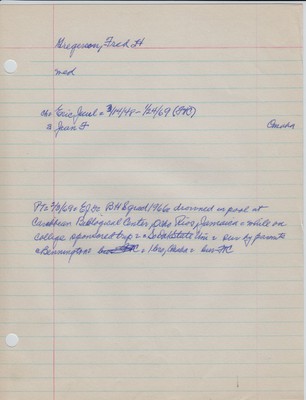 Gregerson, Fred H
med
ch= Eric Juul = 3/14/48 - 1/24/69 (FR)
= Jean F
Omaha
Pt= 2/3/69= BHS grad 1966= drowned in pool at
Caribbean Biological Center, Ocho Rios, Jamaica = while on
college sponsored trip = So Dak State Univ = surv by parents
=Bennington = 1 bro, Omaha = bur FC